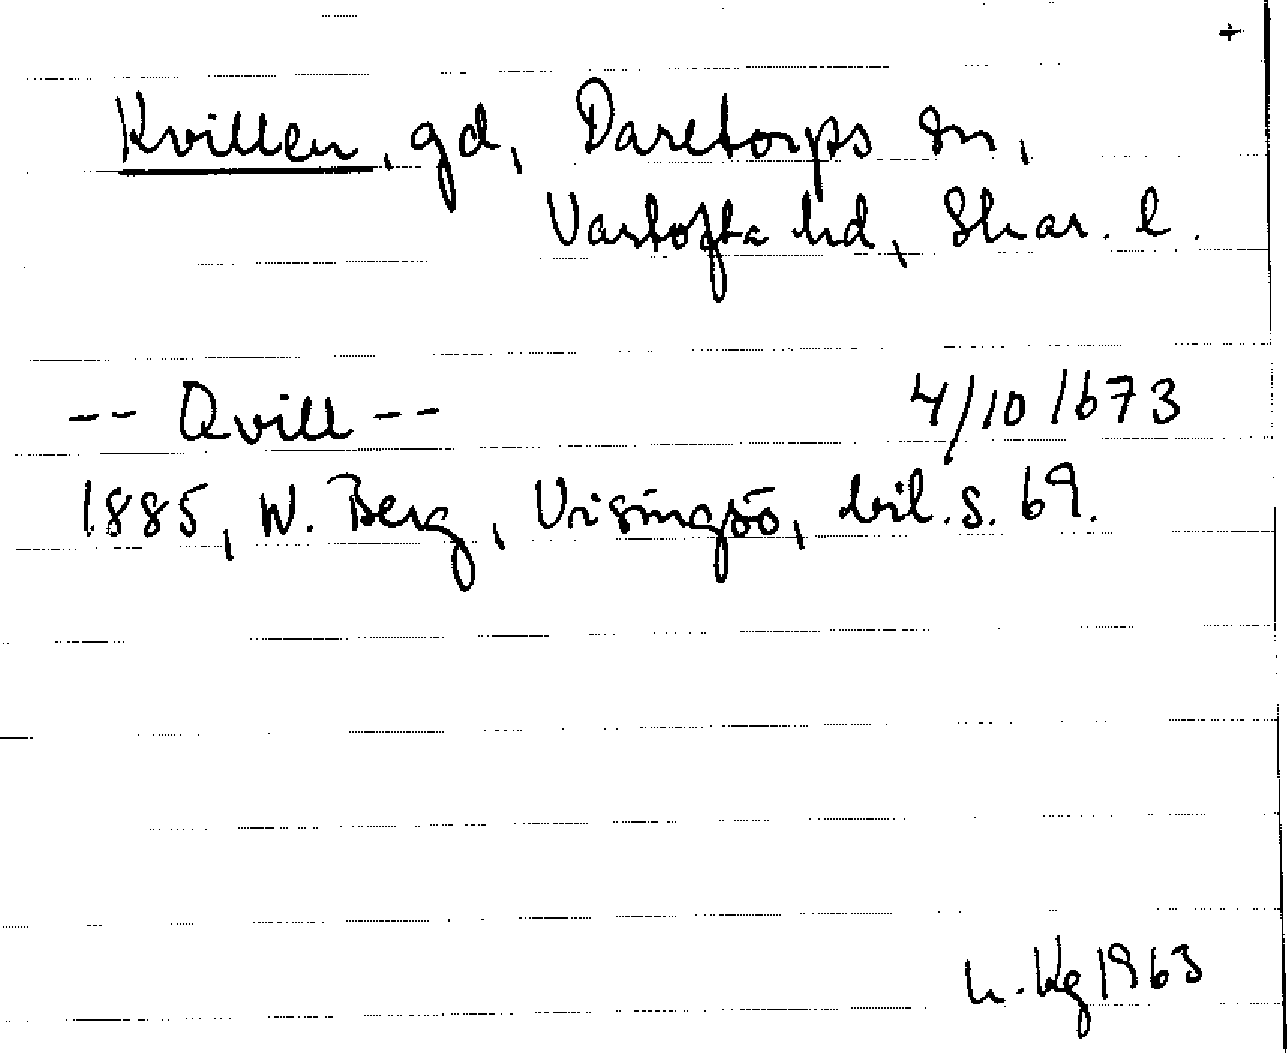 +
Kvillen, gd, Daretorps sn,
Vartofta hd, Skar. l.
-- Qvill -- 4/10 1673
1885, W. Berg, Visingsö, bil. s. 69.
Kg 1963